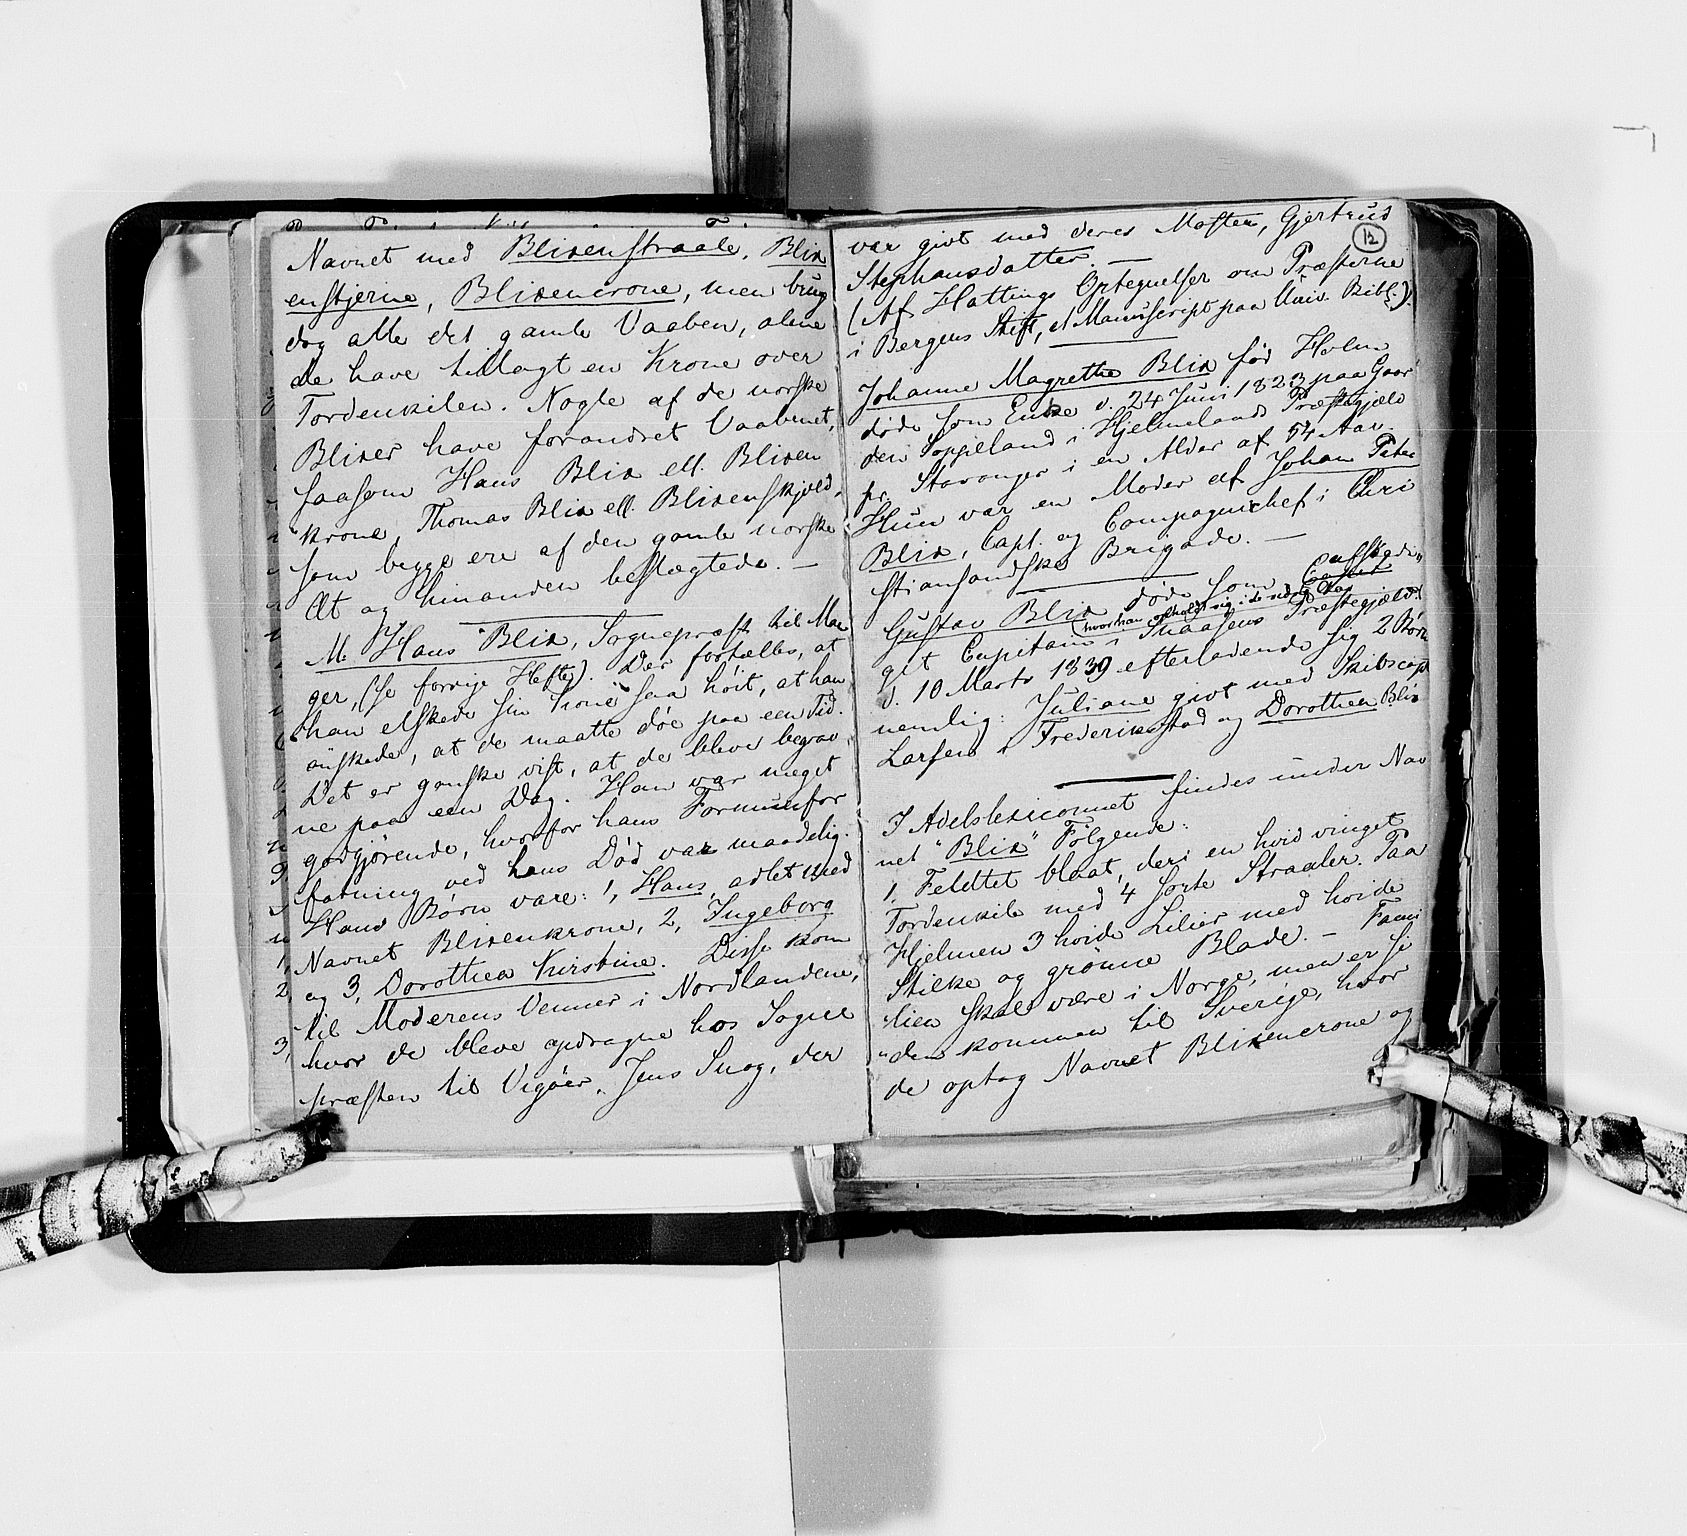 Navnet med Blixenstraale, Blix
enstjerne, Blixencrone, men brug
dog alle det gamle Vaaben, alene
de have tillagt en Krone over
Tordenkilen. Nogle af de norske
Blixer have forandret Vaabnet,
saasom Hans Blix ell. Blixen
krone, Thomas Blix ell. Blixenskjold,
som begge ere af den gamle norske
Æt og hinanden beslægtede. —
M. Hans Blix, Sognepræst til Man
ger, (se forrige Hefte). Der fortælles, at
han elskede sin Kone saa höit, at han
önskede, at de maatte döe paa een Tid.
Det er ganske vist, at de bleve begrav
ne paa een Dag. Han var meget
godgjörende, hvorfor hans Formuesfor
fatning ved hans Död var maadelig.
Hans Börn vare: 1, Hans, adlet med
Navnet Blixenkrone, 2, Ingeborg
og 3, Dorothea Kirstine. Disse kom
til Moderens Venner i Nordlandene,
hvor de bleve opdragne hos Sogne
præsten til Vigöer, Jens Snog, der
12
var givt med deres Moster, Gjertrud
Stephansdatter. —
(Af Hattings Optegnelser om Præsterne
i Bergens Stift, et Manuscript paa Univ. Bibl.)
Johanne Magrethe Blix fød Holm
døde som Enke d. 24 Juni 1823 paa Gaar
den i Hjelmelands Præstegjæld
pr. Stavanger i en Alder af 54 Aar.
Hun var en Moder af Johan Peter
Blix, Capt. og Compagniechef i Chri
stiansandske Brigade. —
Gustav Blix döde som Cassere„
get Capitain i Snaasens Præstegjæld
(hvor han opholdt sig i de sidste Aar
d. 10 Marts 1839 efterladende sig 2 Börn
nemlig: Juliane givt med Skibscapt
Larsen i Frederiksstad og Dorothea Blix
I Adelslexiconnet findes under Nav
net "Blix" Fölgende:
1, Feldtet blaat, deri en hvid vinget
Tordenkile med 4 sorte Straaler. Paa
Hjelmen 3 hvide Lilier med hvide
Stilke og grönne Blade. — Fami
lien skal være i Norge, men er si
"den kommen til Sverige, hvor
de optog Navnet Blixencrone og